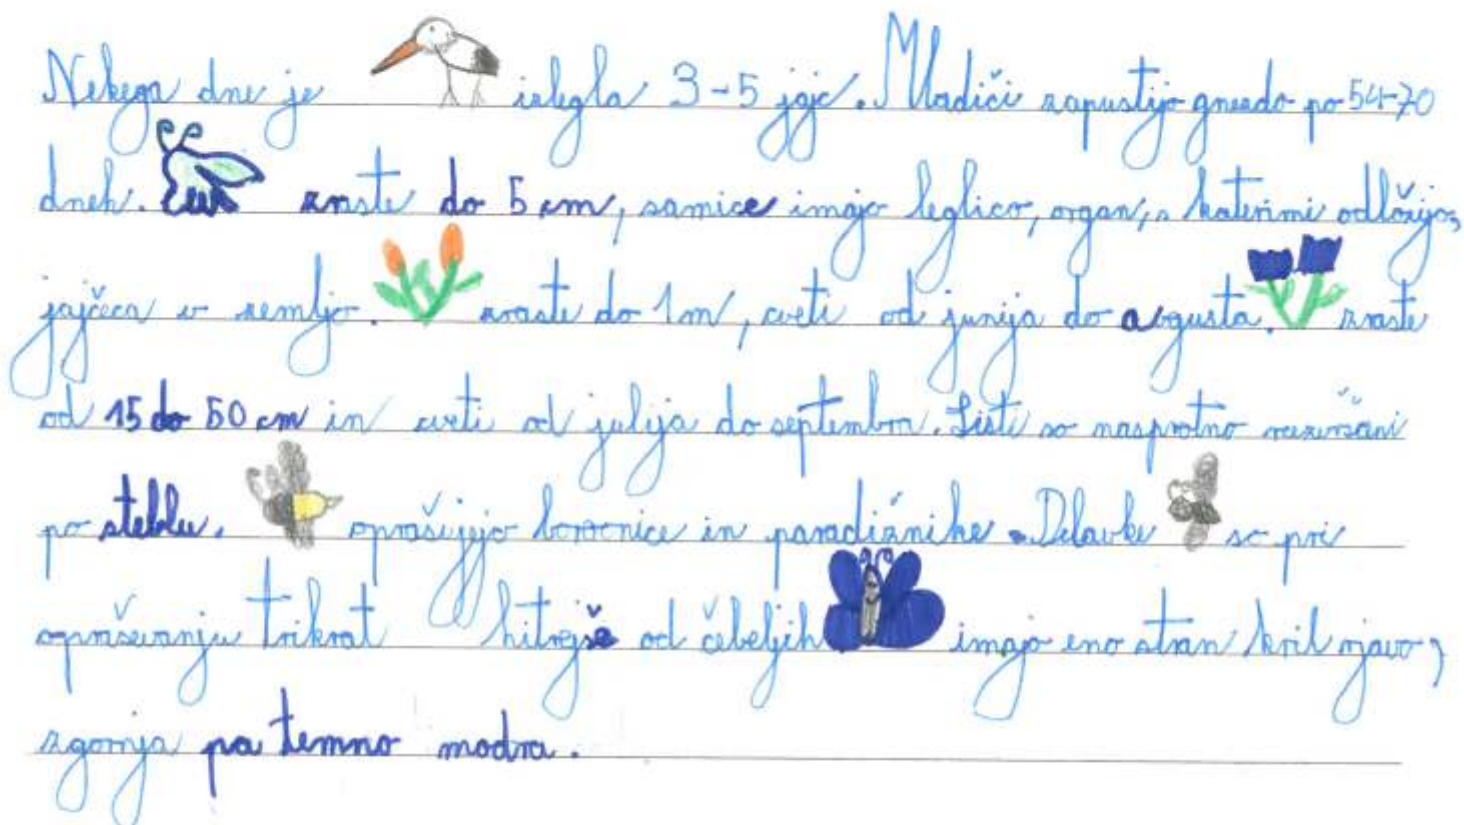 Nekega dne je izlegla 3-5 jajc. Mladiči zapustijo gnezdo po 54-70
dneh. zraste do 5 cm, samice imajo leglico, organ, s katerimi odložijo,
jajčeca v zemljo. zraste do 1m, cveti od junija do avgusta. zraste
od 15 do 50 cm in cveti od julija do septembra. Listi so nasprotno razvrščani
po steblu. oprašujejo borovnice in paradižnike. Delavke so pri
opraševanju trikrat hitrejše od čebeljih imajo eno stran kril rjavo,
zgornja pa temno modra.